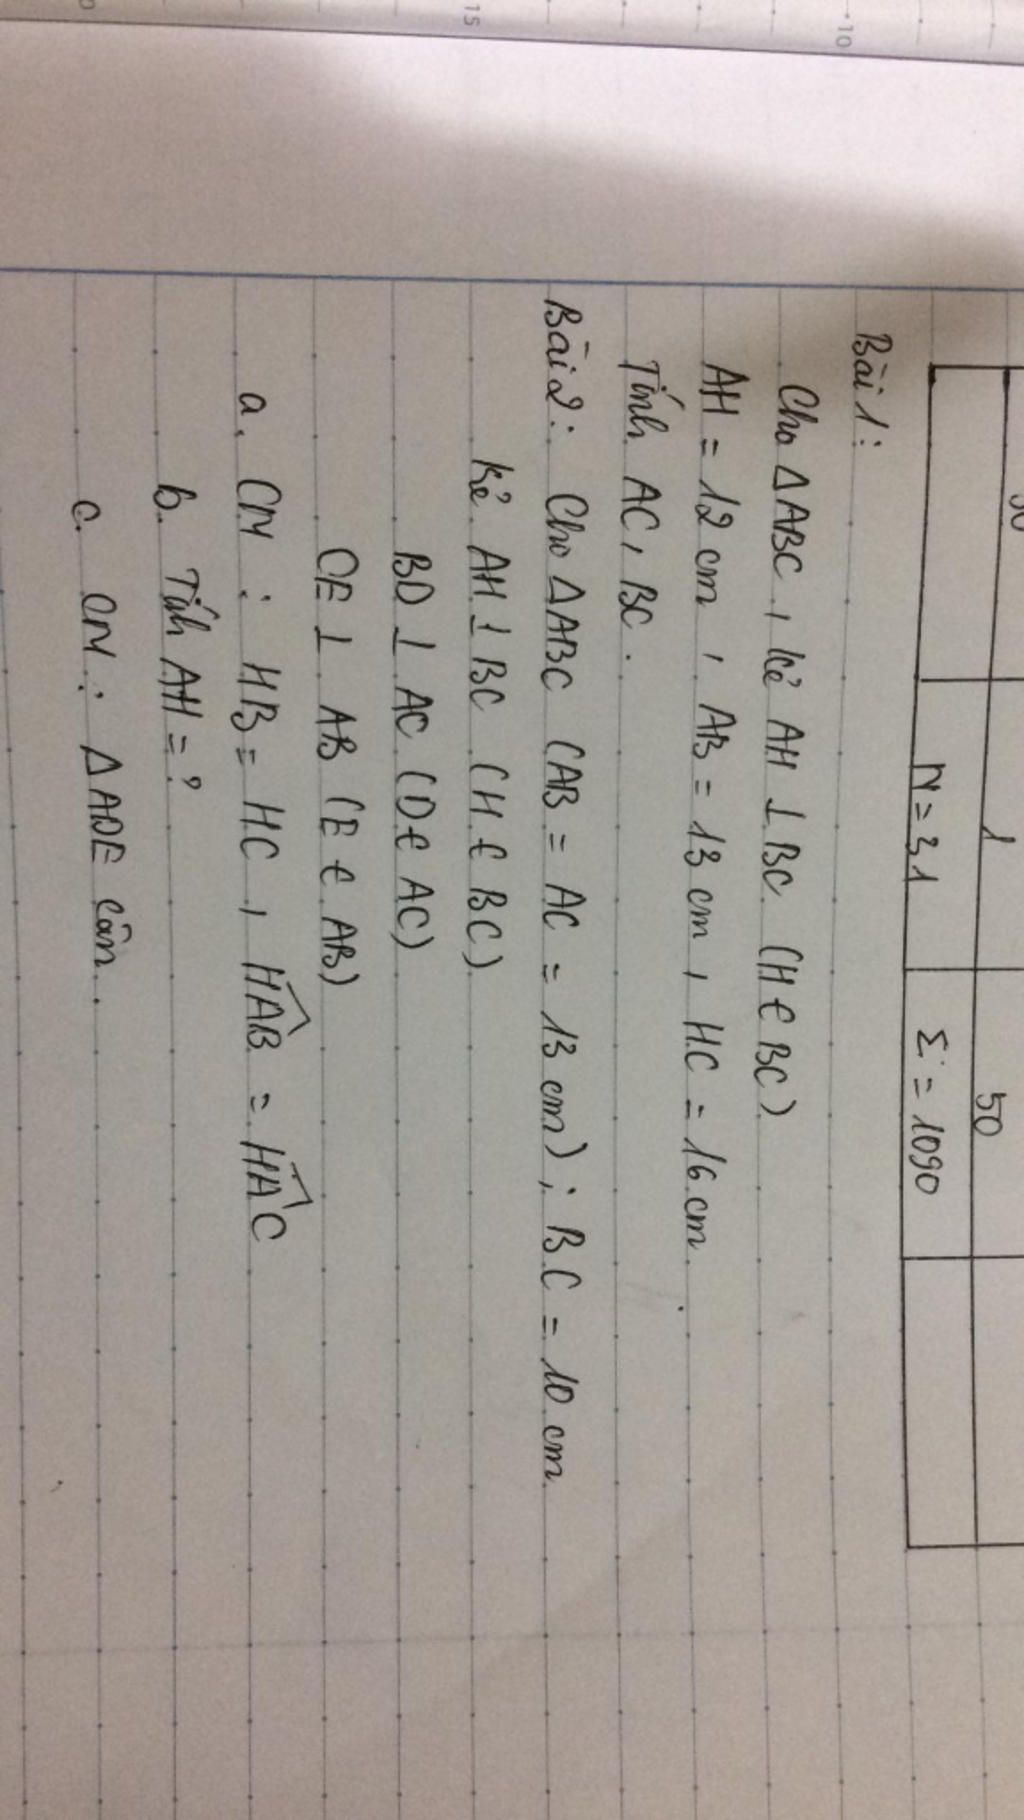 1
50
N = 3,1
Σ = 1090
Bài 1:
Cho ΔABC, kẻ AH ⊥ BC (H ∈ BC)
AH = 12 cm, AB = 13 cm, HC = 16 cm.
Tính AC, BC.
Bài 2: Cho ΔABC (AB = AC = 13 cm); BC = 10 cm
Kẻ AH ⊥ BC (H ∈ BC)
BD ⊥ AC (D ∈ AC)
CE ⊥ AB (E ∈ AB)
a. CM : HB = HC, \widehat{HAB} = \widehat{HAC}
b. Tính AH = ?
c. CM : ΔADE cân.
10
15